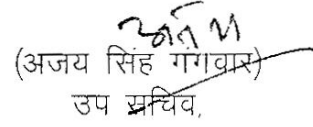 (अजय सिंह गंगवार)
उप सचिव,